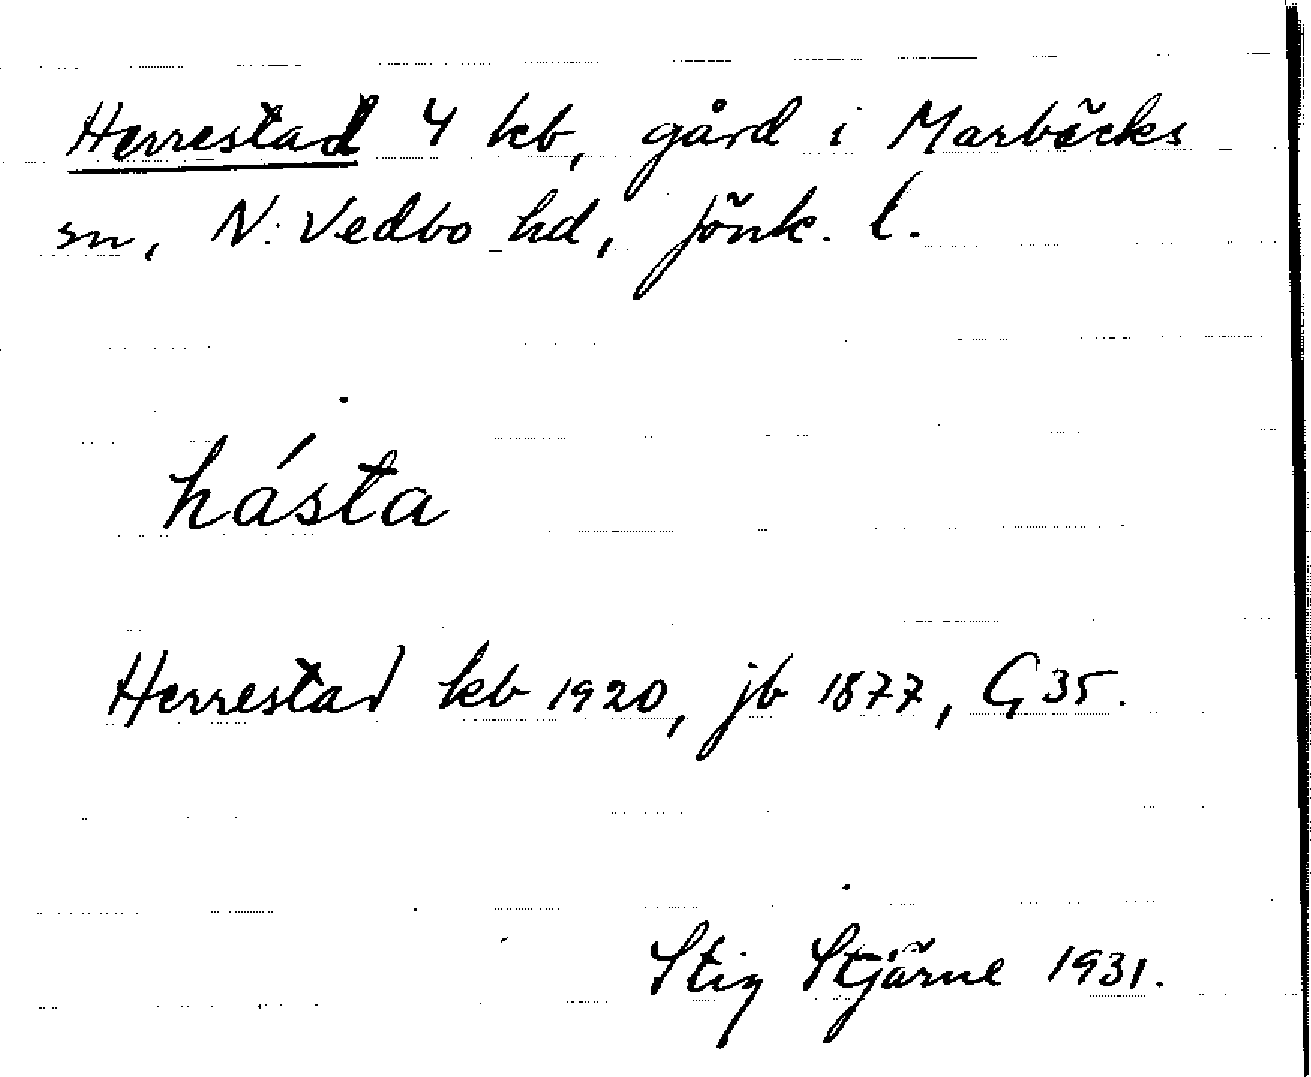 Herrestad 4 kb, gård i Marbäcks
sn, N. Vedbo hd, Jönk. l.
hásta
Herrestad kb 1920, jb 1877, G 35.
Stig Stjärne 1931.